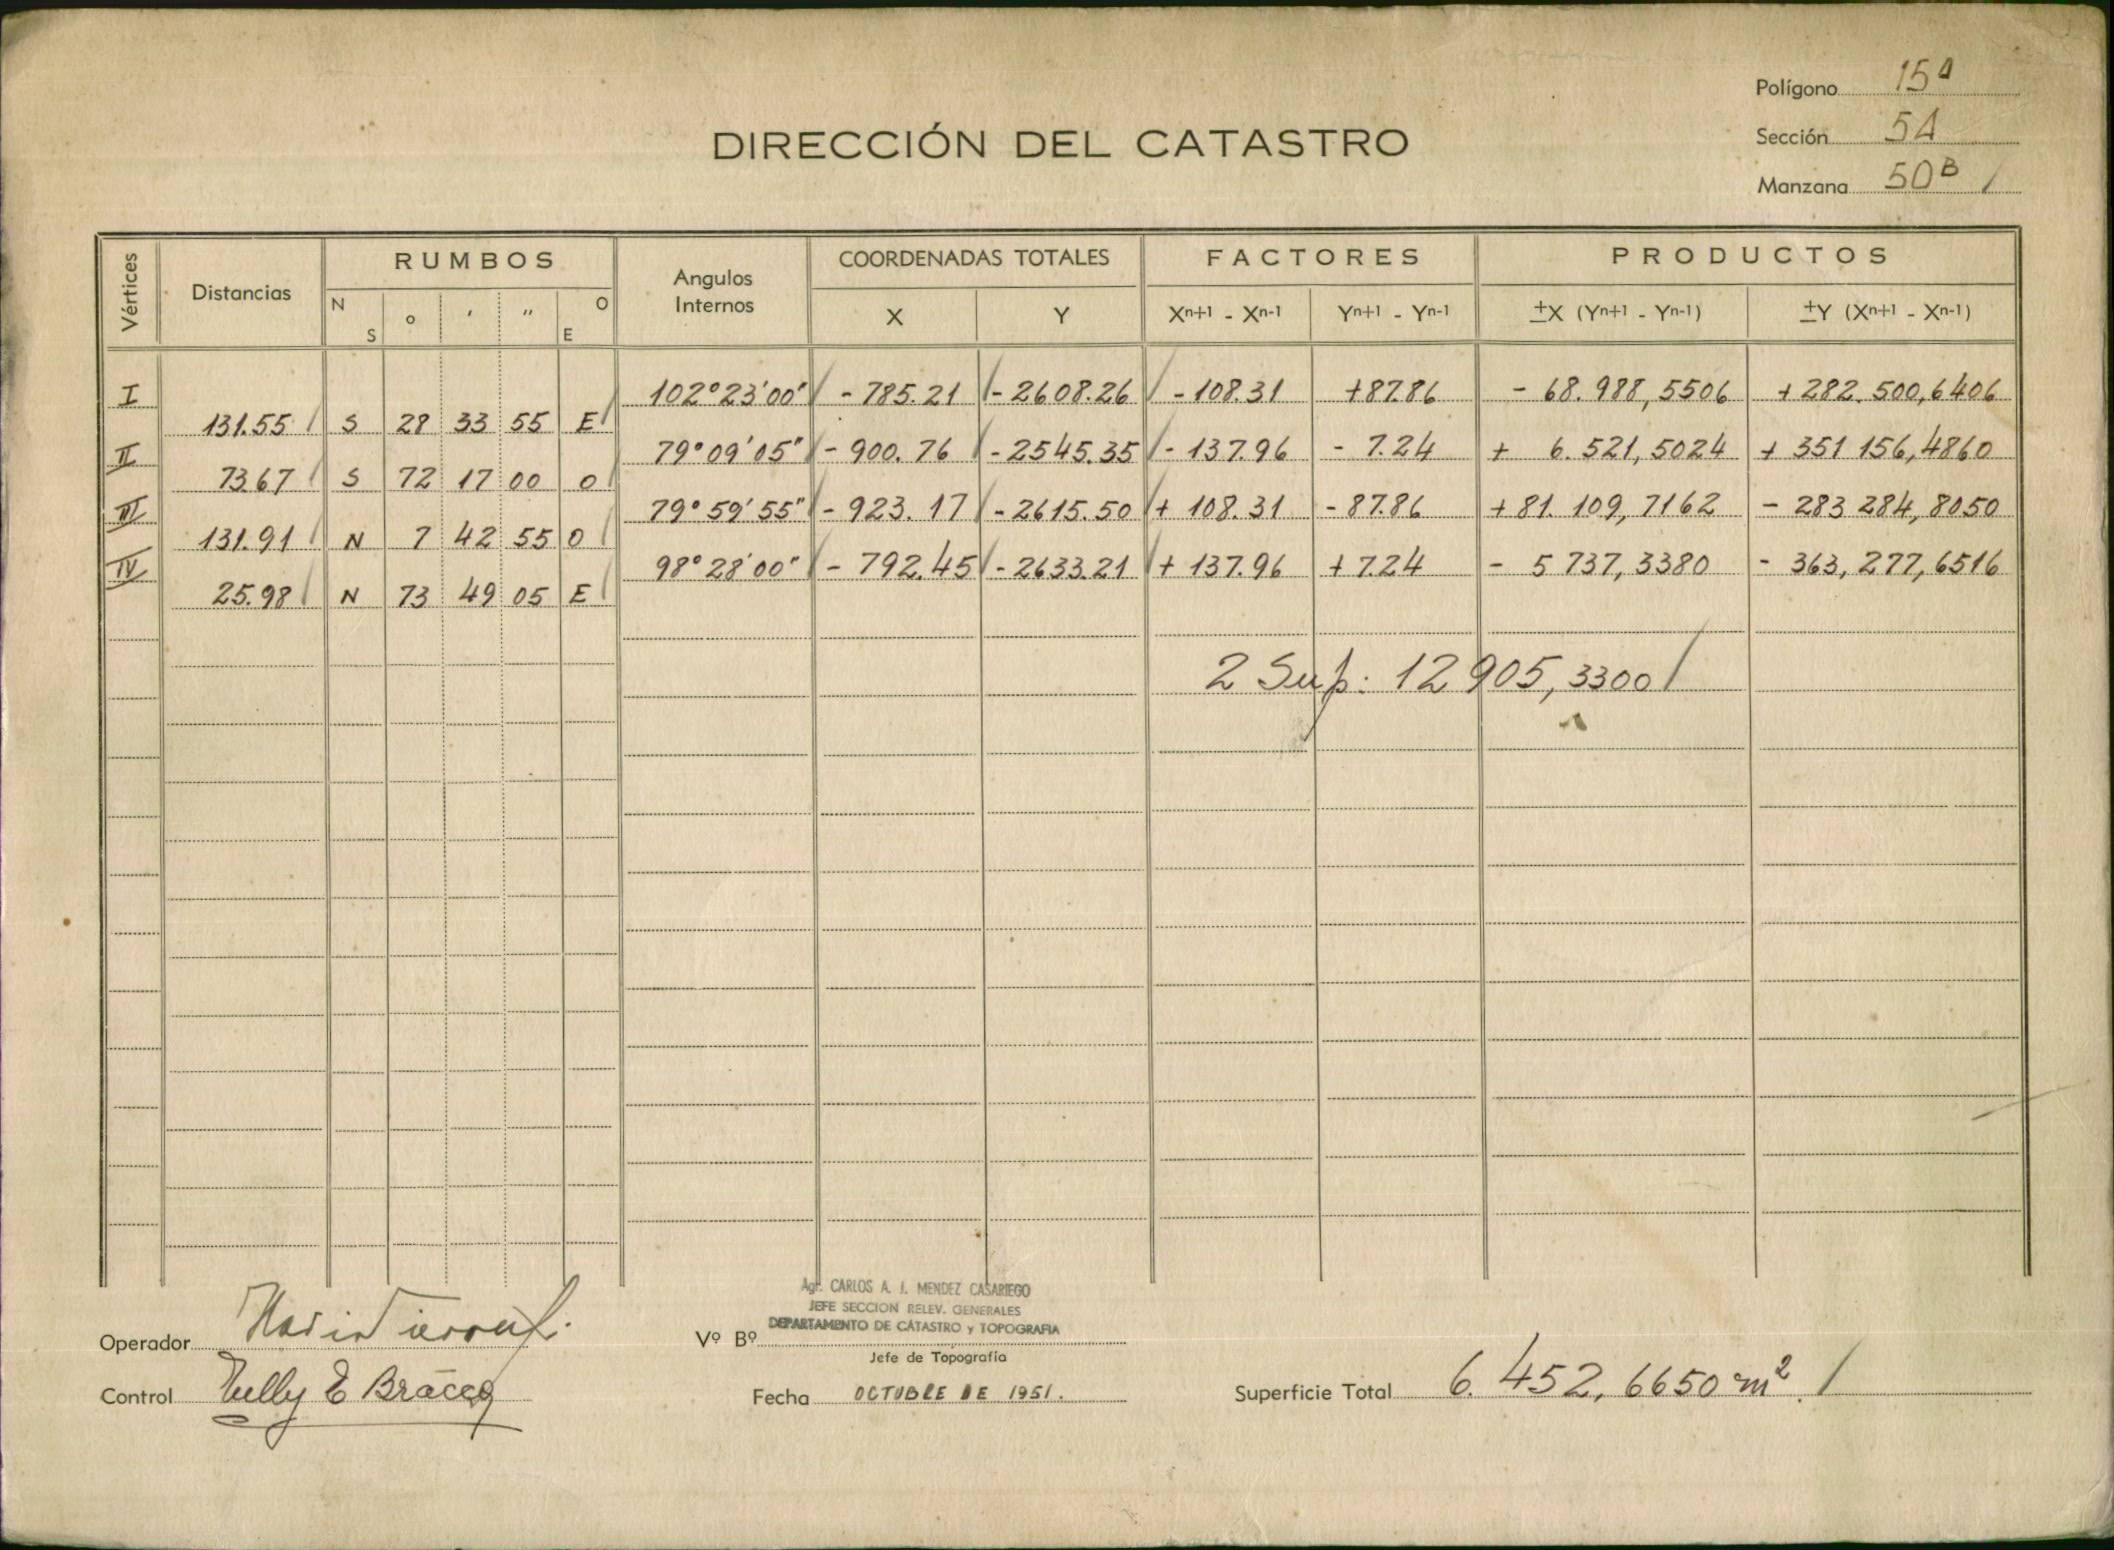 Polígono 15ª
Sección 5A
Manzana 50 B /
DIRECCIÓN DEL CATASTRO
Vértices Distancias RUMBOS Angulos Internos COORDENADAS TOTALES FACTORES PRODUCTOS
N S ° ' " O E X Y Xn+1 - Xn-1 Yn+1 - Yn-1 ±X (Yn+1 - Yn-1) ±Y (Xn+1 - Xn-1)
I 102°23'00" - 785.21 - 2608.26 - 108.31 +87.86 - 68.988,5506 + 282.500,6406
131.55 S 28 33 55 E
II 79°09'05" - 900.76 - 2545.35 - 137.96 - 7.24 + 6.521,5024 + 351 156,4860
73.67 S 72 17 00 O
III 79°59'55" - 923.17 - 2615.50 + 108.31 - 87.86 + 81.109,7162 - 283 284,8050
131.91 N 7 42 55 O
IV 98°28'00" - 792.45 - 2633.21 + 137.96 + 7.24 - 5 737,3380 - 363,277,6516
25.98 N 73 49 05 E
2 Sup: 12 905,3300 /
Agr. CARLOS A. J. MENDEZ CASARIEGO
JEFE SECCION RELEV. GENERALES
DEPARTAMENTO DE CATASTRO y TOPOGRAFIA
Operador Vº Bº
Jefe de Topografía
Control Nelly E Bracco Fecha OCTUBRE DE 1951. Superficie Total 6.452,6650 m². /